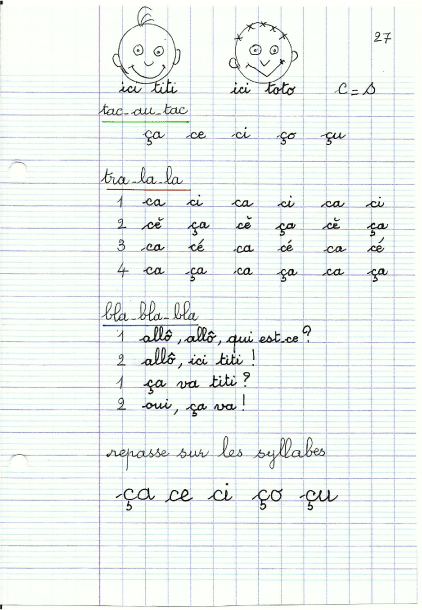 27
ici titi ici toto c = s
tac-au-tac
ça ce ci ço çu
tra-la-la
1 ca ci ca ci ca ci
2 cĕ ça cĕ ça cĕ ça
3 ca cé ca cé ca cé
4 ca ça ca ça ca ça
bla-bla-bla
1 allô, allô, qui est-ce ?
2 allô, ici titi !
1 ça va titi ?
2 oui, ça va !
repasse sur les syllabes
ça ce ci ço çu